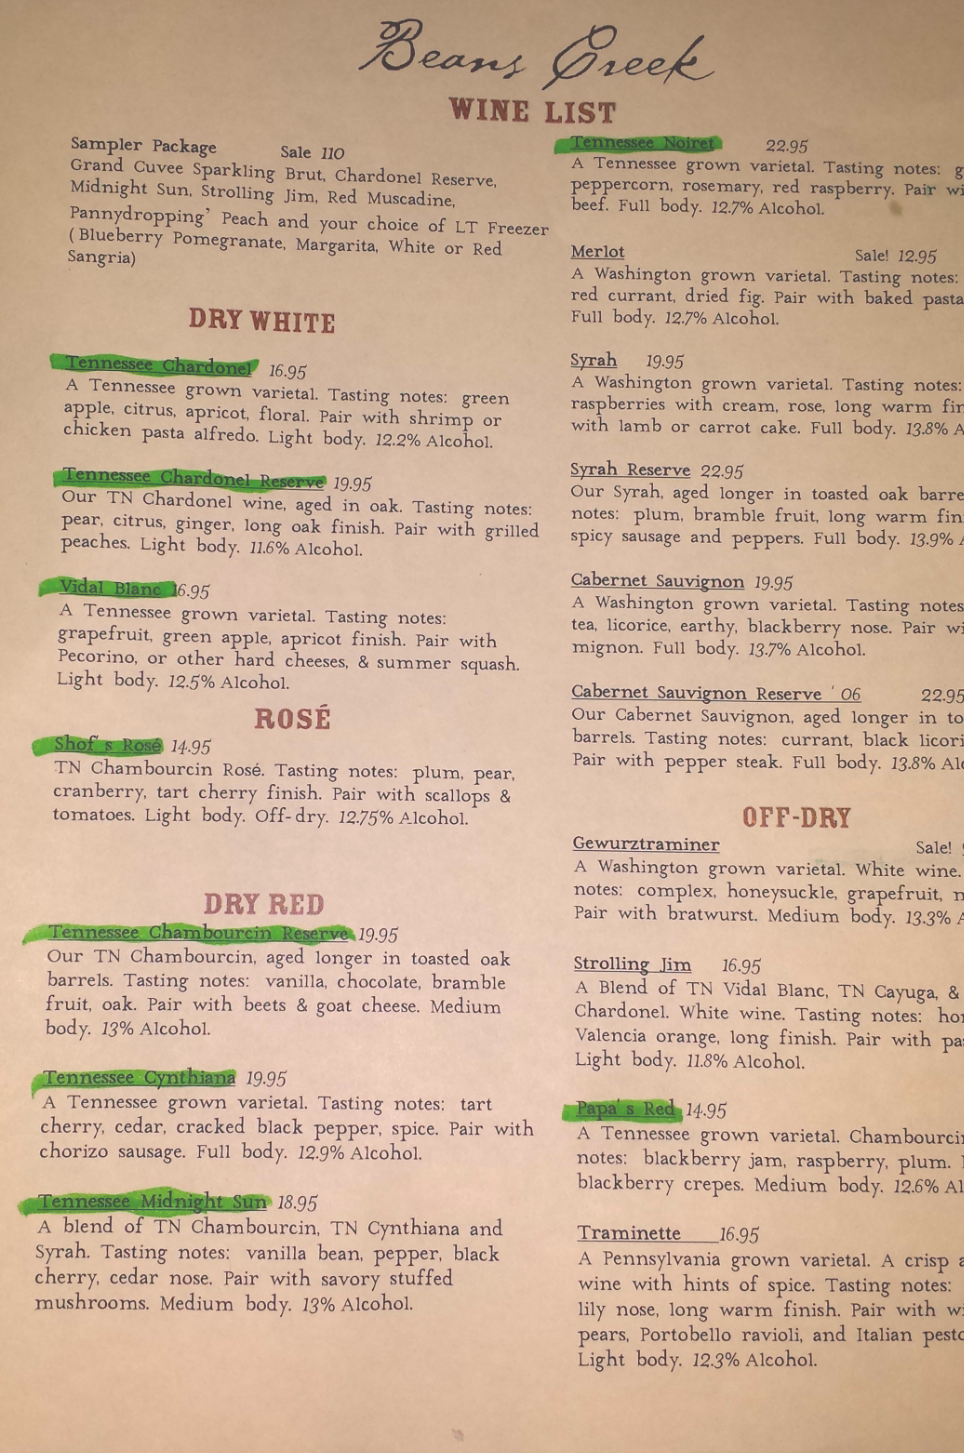 Beans Creek
WINE LIST
Sampler Package Sale 110
Grand Cuvee Sparkling Brut, Chardonel Reserve,
Midnight Sun, Strolling Jim, Red Muscadine,
Pannydropping' Peach and your choice of LT Freezer
( Blueberry Pomegranate, Margarita, White or Red
Sangria)
DRY WHITE
Tennessee Chardonel 16.95
A Tennessee grown varietal. Tasting notes: green
apple, citrus, apricot, floral. Pair with shrimp or
chicken pasta alfredo. Light body. 12.2% Alcohol.
Tennessee Chardonel Reserve 19.95
Our TN Chardonel wine, aged in oak. Tasting notes:
pear, citrus, ginger, long oak finish. Pair with grilled
peaches. Light body. 11.6% Alcohol.
Vidal Blanc 16.95
A Tennessee grown varietal. Tasting notes:
grapefruit, green apple, apricot finish. Pair with
Pecorino, or other hard cheeses, & summer squash.
Light body. 12.5% Alcohol.
ROSÉ
Shof's Rosé 14.95
TN Chambourcin Rosé. Tasting notes: plum, pear,
cranberry, tart cherry finish. Pair with scallops &
tomatoes. Light body. Off-dry. 12.75% Alcohol.
DRY RED
Tennessee Chambourcin Reserve 19.95
Our TN Chambourcin, aged longer in toasted oak
barrels. Tasting notes: vanilla, chocolate, bramble
fruit, oak. Pair with beets & goat cheese. Medium
body. 13% Alcohol.
Tennessee Cynthiana 19.95
A Tennessee grown varietal. Tasting notes: tart
cherry, cedar, cracked black pepper, spice. Pair with
chorizo sausage. Full body. 12.9% Alcohol.
Tennessee Midnight Sun 18.95
A blend of TN Chambourcin, TN Cynthiana and
Syrah. Tasting notes: vanilla bean, pepper, black
cherry, cedar nose. Pair with savory stuffed
mushrooms. Medium body. 13% Alcohol.
Tennessee Noiret 22.95
A Tennessee grown varietal. Tasting notes:
peppercorn, rosemary, red raspberry. Pair
beef. Full body. 12.7% Alcohol.
Merlot Sale! 12.95
A Washington grown varietal. Tasting notes:
red currant, dried fig. Pair with baked pasta
Full body. 12.7% Alcohol.
Syrah 19.95
A Washington grown varietal. Tasting notes:
raspberries with cream, rose, long warm
with lamb or carrot cake. Full body. 13.8%
Syrah Reserve 22.95
Our Syrah, aged longer in toasted oak
notes: plum, bramble fruit, long warm
spicy sausage and peppers. Full body. 13.9%
Cabernet Sauvignon 19.95
A Washington grown varietal. Tasting notes
tea, licorice, earthy, blackberry nose. Pair
mignon. Full body. 13.7% Alcohol.
Cabernet Sauvignon Reserve '06 22.95
Our Cabernet Sauvignon, aged longer in
barrels. Tasting notes: currant, black
Pair with pepper steak. Full body. 13.8%
OFF-DRY
Gewurztraminer Sale!
A Washington grown varietal. White wine.
notes: complex, honeysuckle, grapefruit,
Pair with bratwurst. Medium body. 13.3%
Strolling Jim 16.95
A Blend of TN Vidal Blanc, TN Cayuga, &
Chardonel. White wine. Tasting notes:
Valencia orange, long finish. Pair with
Light body. 11.8% Alcohol.
Papa's Red 14.95
A Tennessee grown varietal.
notes: blackberry jam, raspberry, plum.
blackberry crepes. Medium body. 12.6%
Traminette 16.95
A Pennsylvania grown varietal. A crisp
wine with hints of spice. Tasting notes:
lily nose, long warm finish. Pair with
pears, Portobello ravioli, and Italian
Light body. 12.3% Alcohol.